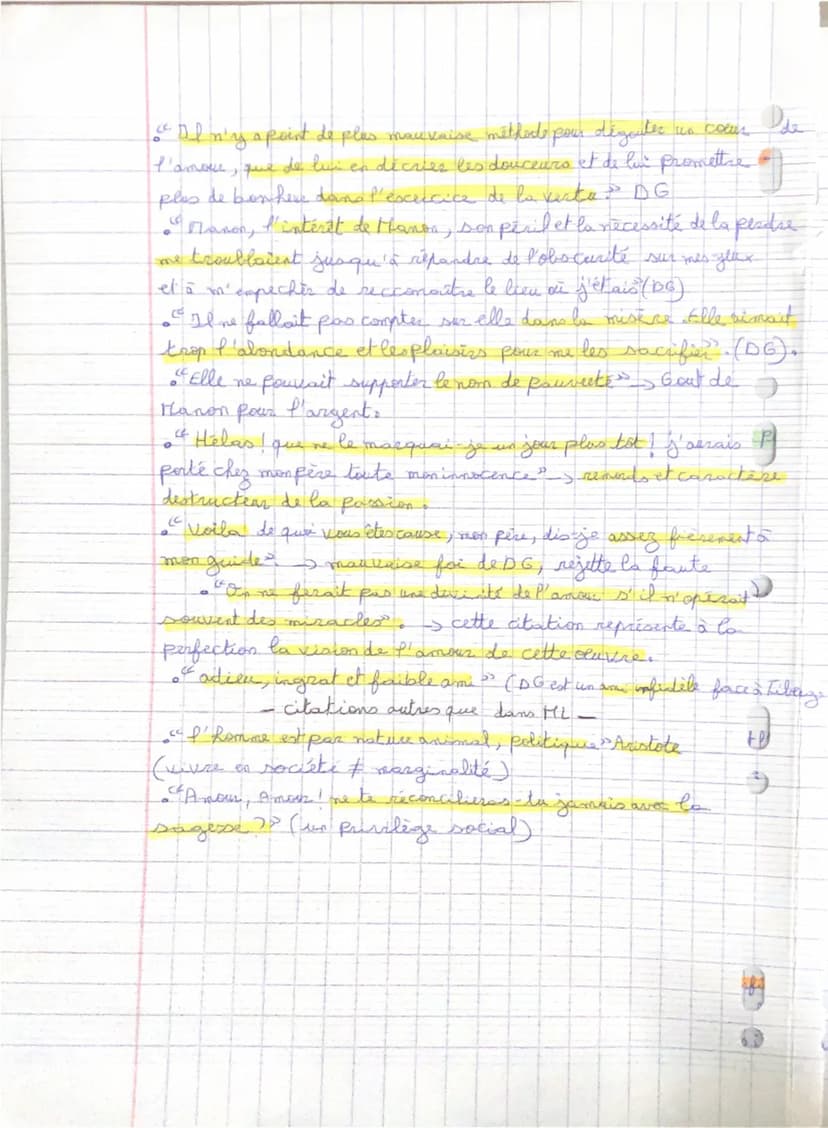 • " Il n'y a point de plus mauvaise méthode pour dégouter un coeur de
l'amour, que de lui en décrier les douceurs et de lui promettre
plus de bonheur dans l'excercice de la vertu." DG
• " Manon, l'intérêt de Manon, son péril et la nécessité de la perdre
me troublaient jusqu'à répandre de l'obscurité sur mes yeux
et à m'empêcher de recconaître le lieu où j'étais" (DG)
• " Il ne fallait pas compter sur elle dans la misère. Elle aimait
trop l'abondance et les plaisirs pour me les sacrifier". (DG).
• "Elle ne pouvait supporter le nom de pauvreté" → Gout de
Manon pour l'argent.
• " Hélas! que ne le marquai-je un jour plus tôt! j'aurais
porté chez mon père toute mon innocence" → remords et caractère
destructeur de la passion.
• " Voilà de quoi vous êtes cause, mon père, dis-je assez fièrement à
mon guide". → mauvaise foi de DG, rejette la faute
• "On ne ferait pas une divinité de l'amour s'il n'opérait
souvent des miracles". → cette citation représente à la
perfection la vision de l'amour de cette oeuvre.
• " adieu, ingrat et faible ami " (DG est un ami infidèle face à Tiberge
- citations autres que dans ML -
• " l'homme est par nature animal, politique" Aristote
(vivre en société ≠ marginalité)
• "Amour, Amour! ne te réconcilieras-tu jamais avec la
sagesse?" (un privilège social)